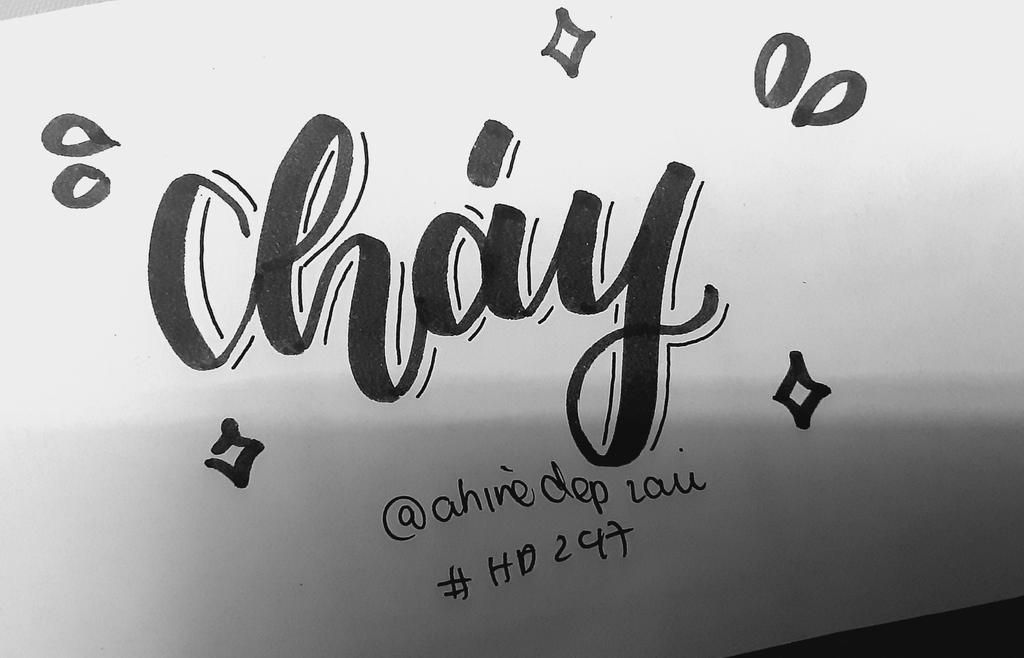 cháy
@ahinèdep zau
# HD 247